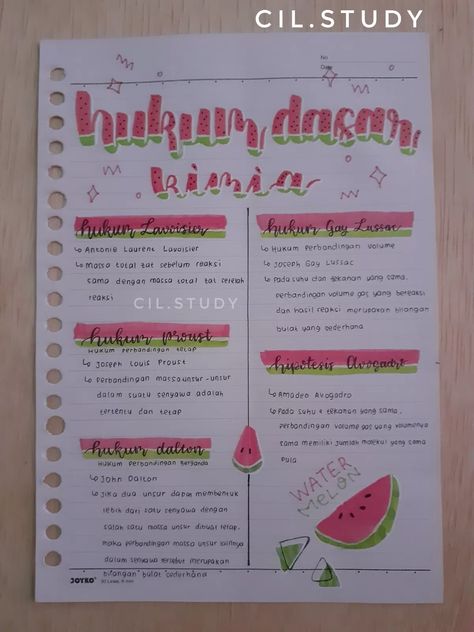 CIL.STUDY
No
Date
hukum dasar
kimia
hukum Lavoisier
↳ Antonie Laurent Lavoisier
↳ Massa total zat sebelum reaksi
sama dengan massa total zat setelah
reaksi
CIL.STUDY
hukum proust
Hukum perbandingan tetap
↳ Joseph Louis Proust
↳ Perbandingan massa unsur-unsur
dalam suatu senyawa adalah
tertentu dan tetap
hukum dalton
Hukum Perbandingan Berganda
↳ John Dalton
↳ Jika dua unsur dapat membentuk
lebih dari satu senyawa dengan
salah satu massa unsur dibuat tetap,
maka perbandingan massa unsur lainnya
dalam senyawa tersebut merupakan
bilangan bulat sederhana
hukum Gay Lussac
↳ Hukum perbandingan volume
↳ Joseph Gay Lussac
↳ Pada suhu dan tekanan yang sama,
perbandingan volume gas yang bereaksi
dan hasil reaksi merupakan bilangan
bulat yang sederhana
hipotesis Avogadro
↳ Amadeo Avogadro
↳ Pada suhu & tekanan yang sama,
perbandingan volume gas yang volumenya
sama memiliki jumlah molekul yang sama
pula
WATER
MELON
JOYKO